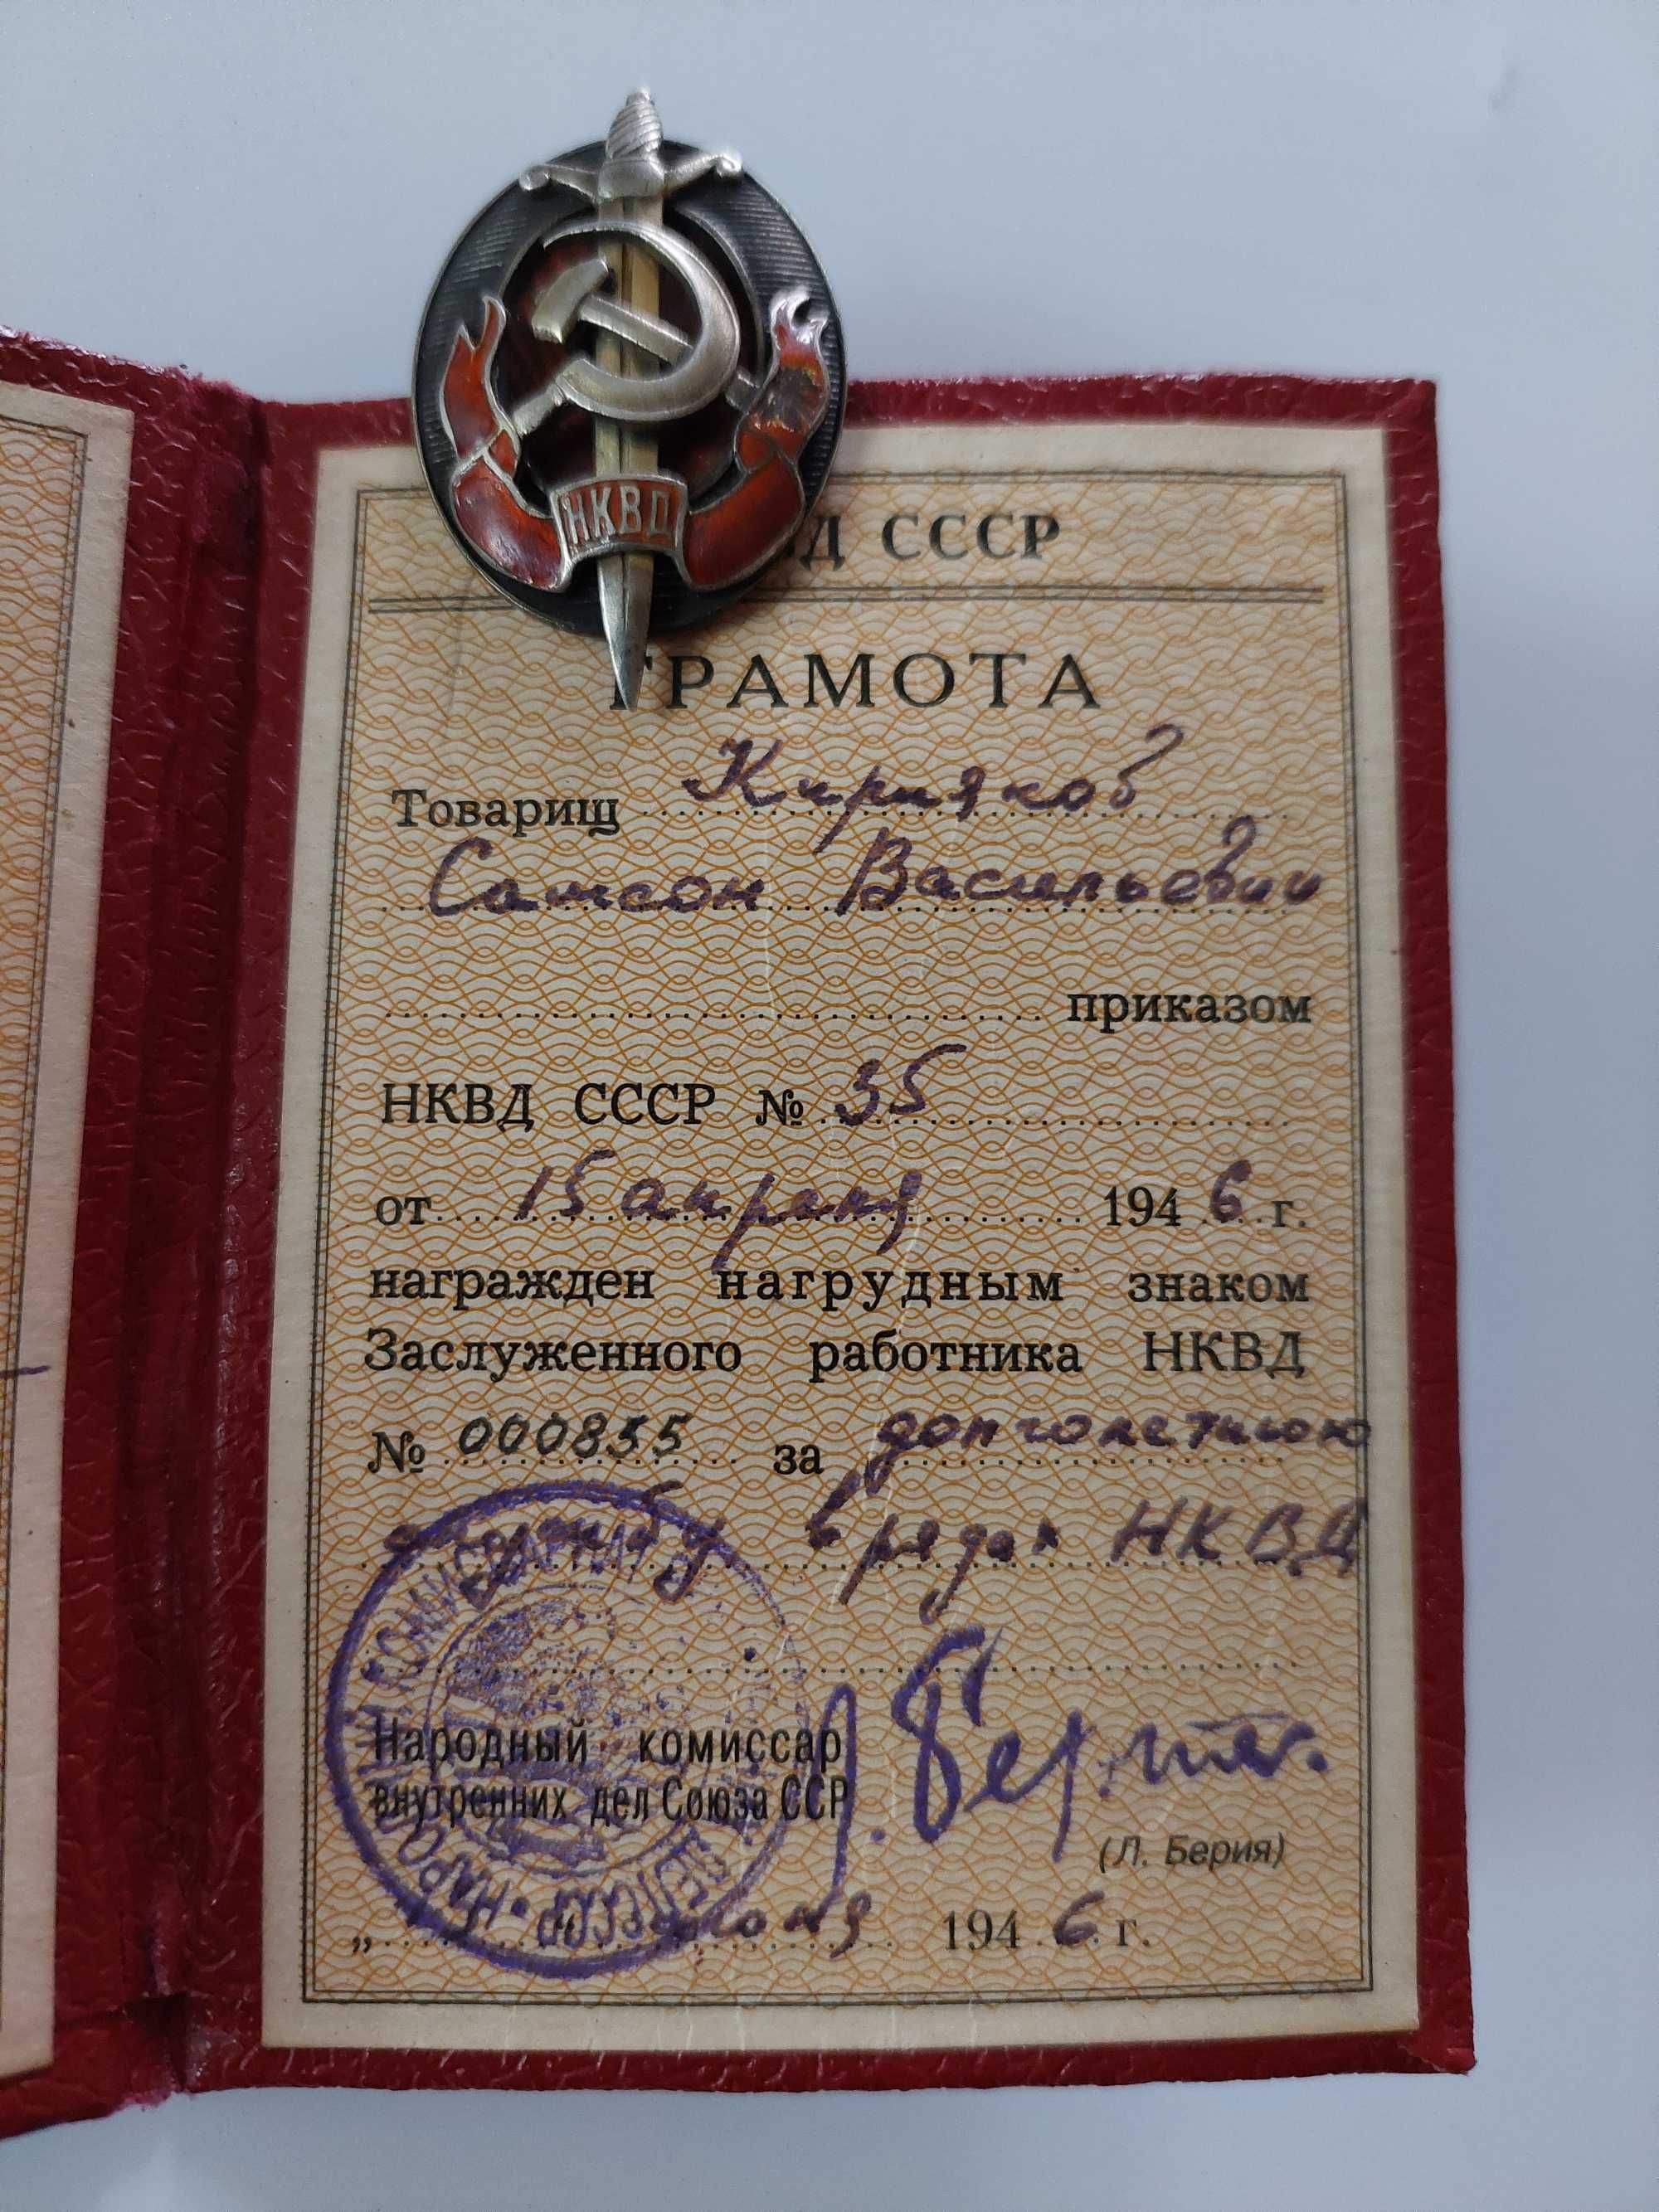 НКВД
Д СССР
ГРАМОТА
Товарищ Кирияков
Самсон Васильевич
приказом
НКВД СССР № 35
от 15 апреля 1946 г.
награжден нагрудным знаком
Заслуженного работника НКВД
№ 000855 за долголетнюю
службу в рядах НКВД
Народный комиссар
внутренних дел Союза ССР
Л. Берия
(Л. Берия)
" 1946 г.